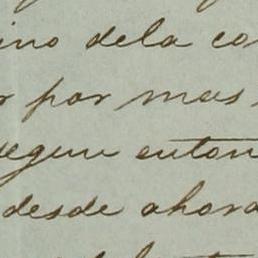 ino dela co
r por mas
segun enton
desde ahora